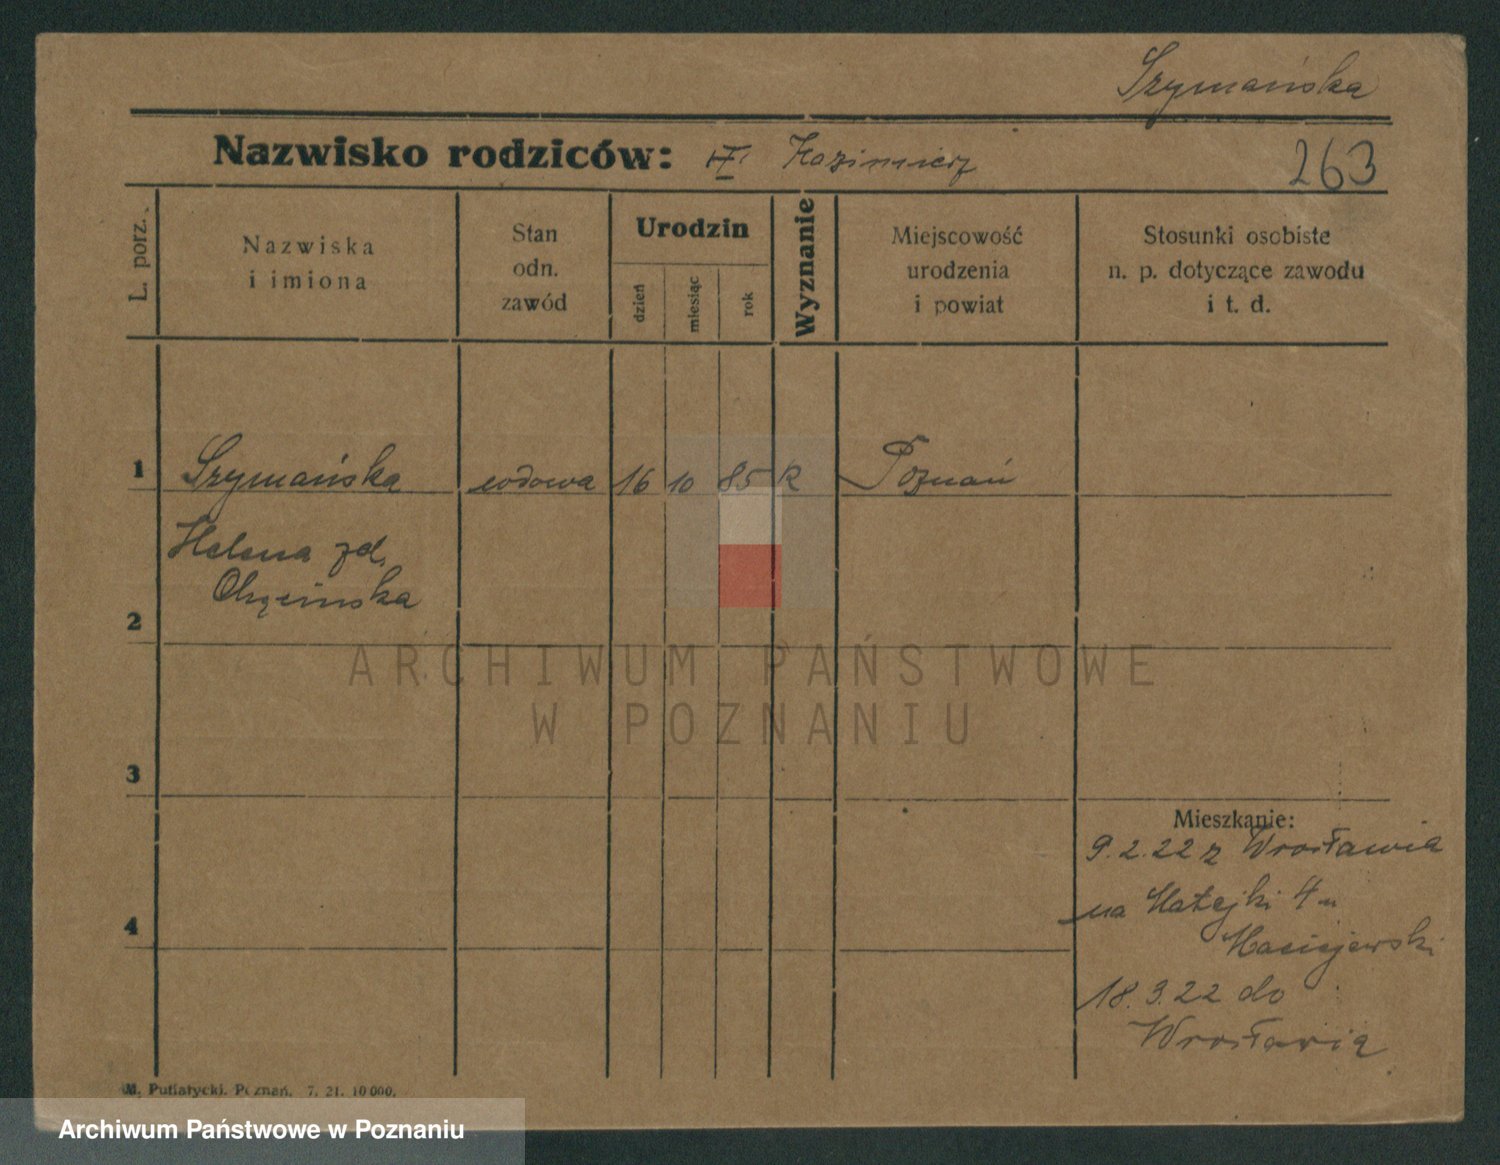 Szymańska
Nazwisko rodziców: Kazimierz
263
L. porz.
Nazwiska
i imiona
Stan
odn.
zawód
Urodzin
dzień
miesiąc
rok
Wyznanie
Miejscowość
urodzenia
i powiat
Stosunki osobiste
n. p. dotyczące zawodu
i t. d.
1 Szymańska wdowa 16 10 85 k Poznań
Helena zd.
2
ARCHIWUM PAŃSTWOWE
W POZNANIU
3
Mieszkanie:
9.2.22 z Wrocławia
na Matejki 4 u
4
Maciejewski
18.3.22 do
Wrocławia
M. Putiatycki. Poznań. 7. 21. 10 000.
Archiwum Państwowe w Poznaniu